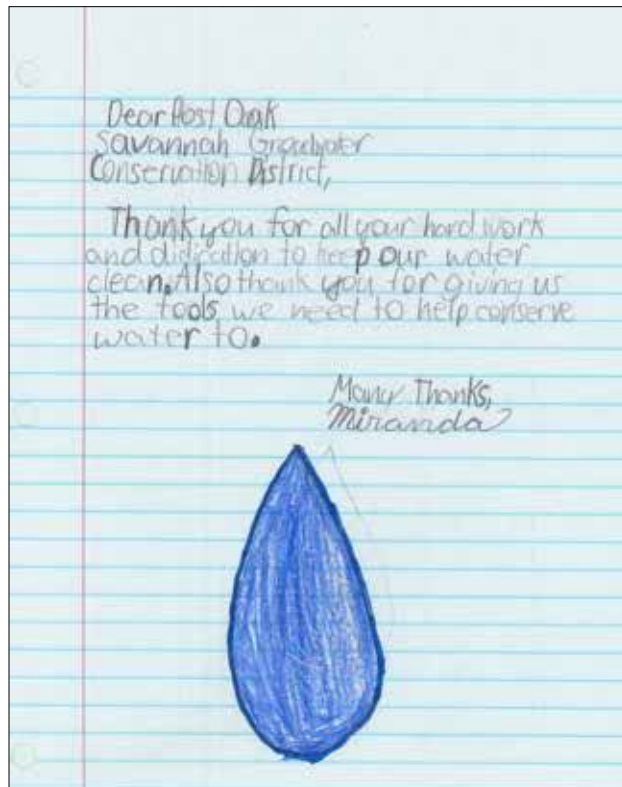 Dear Post Oak
Savannah Groundwater
Conservation District,
Thank you for all your hard work
and didication to keep our water
clean. Also thank you for giving us
the tools we need to help conserve
water to.
Many Thanks,
Miranda